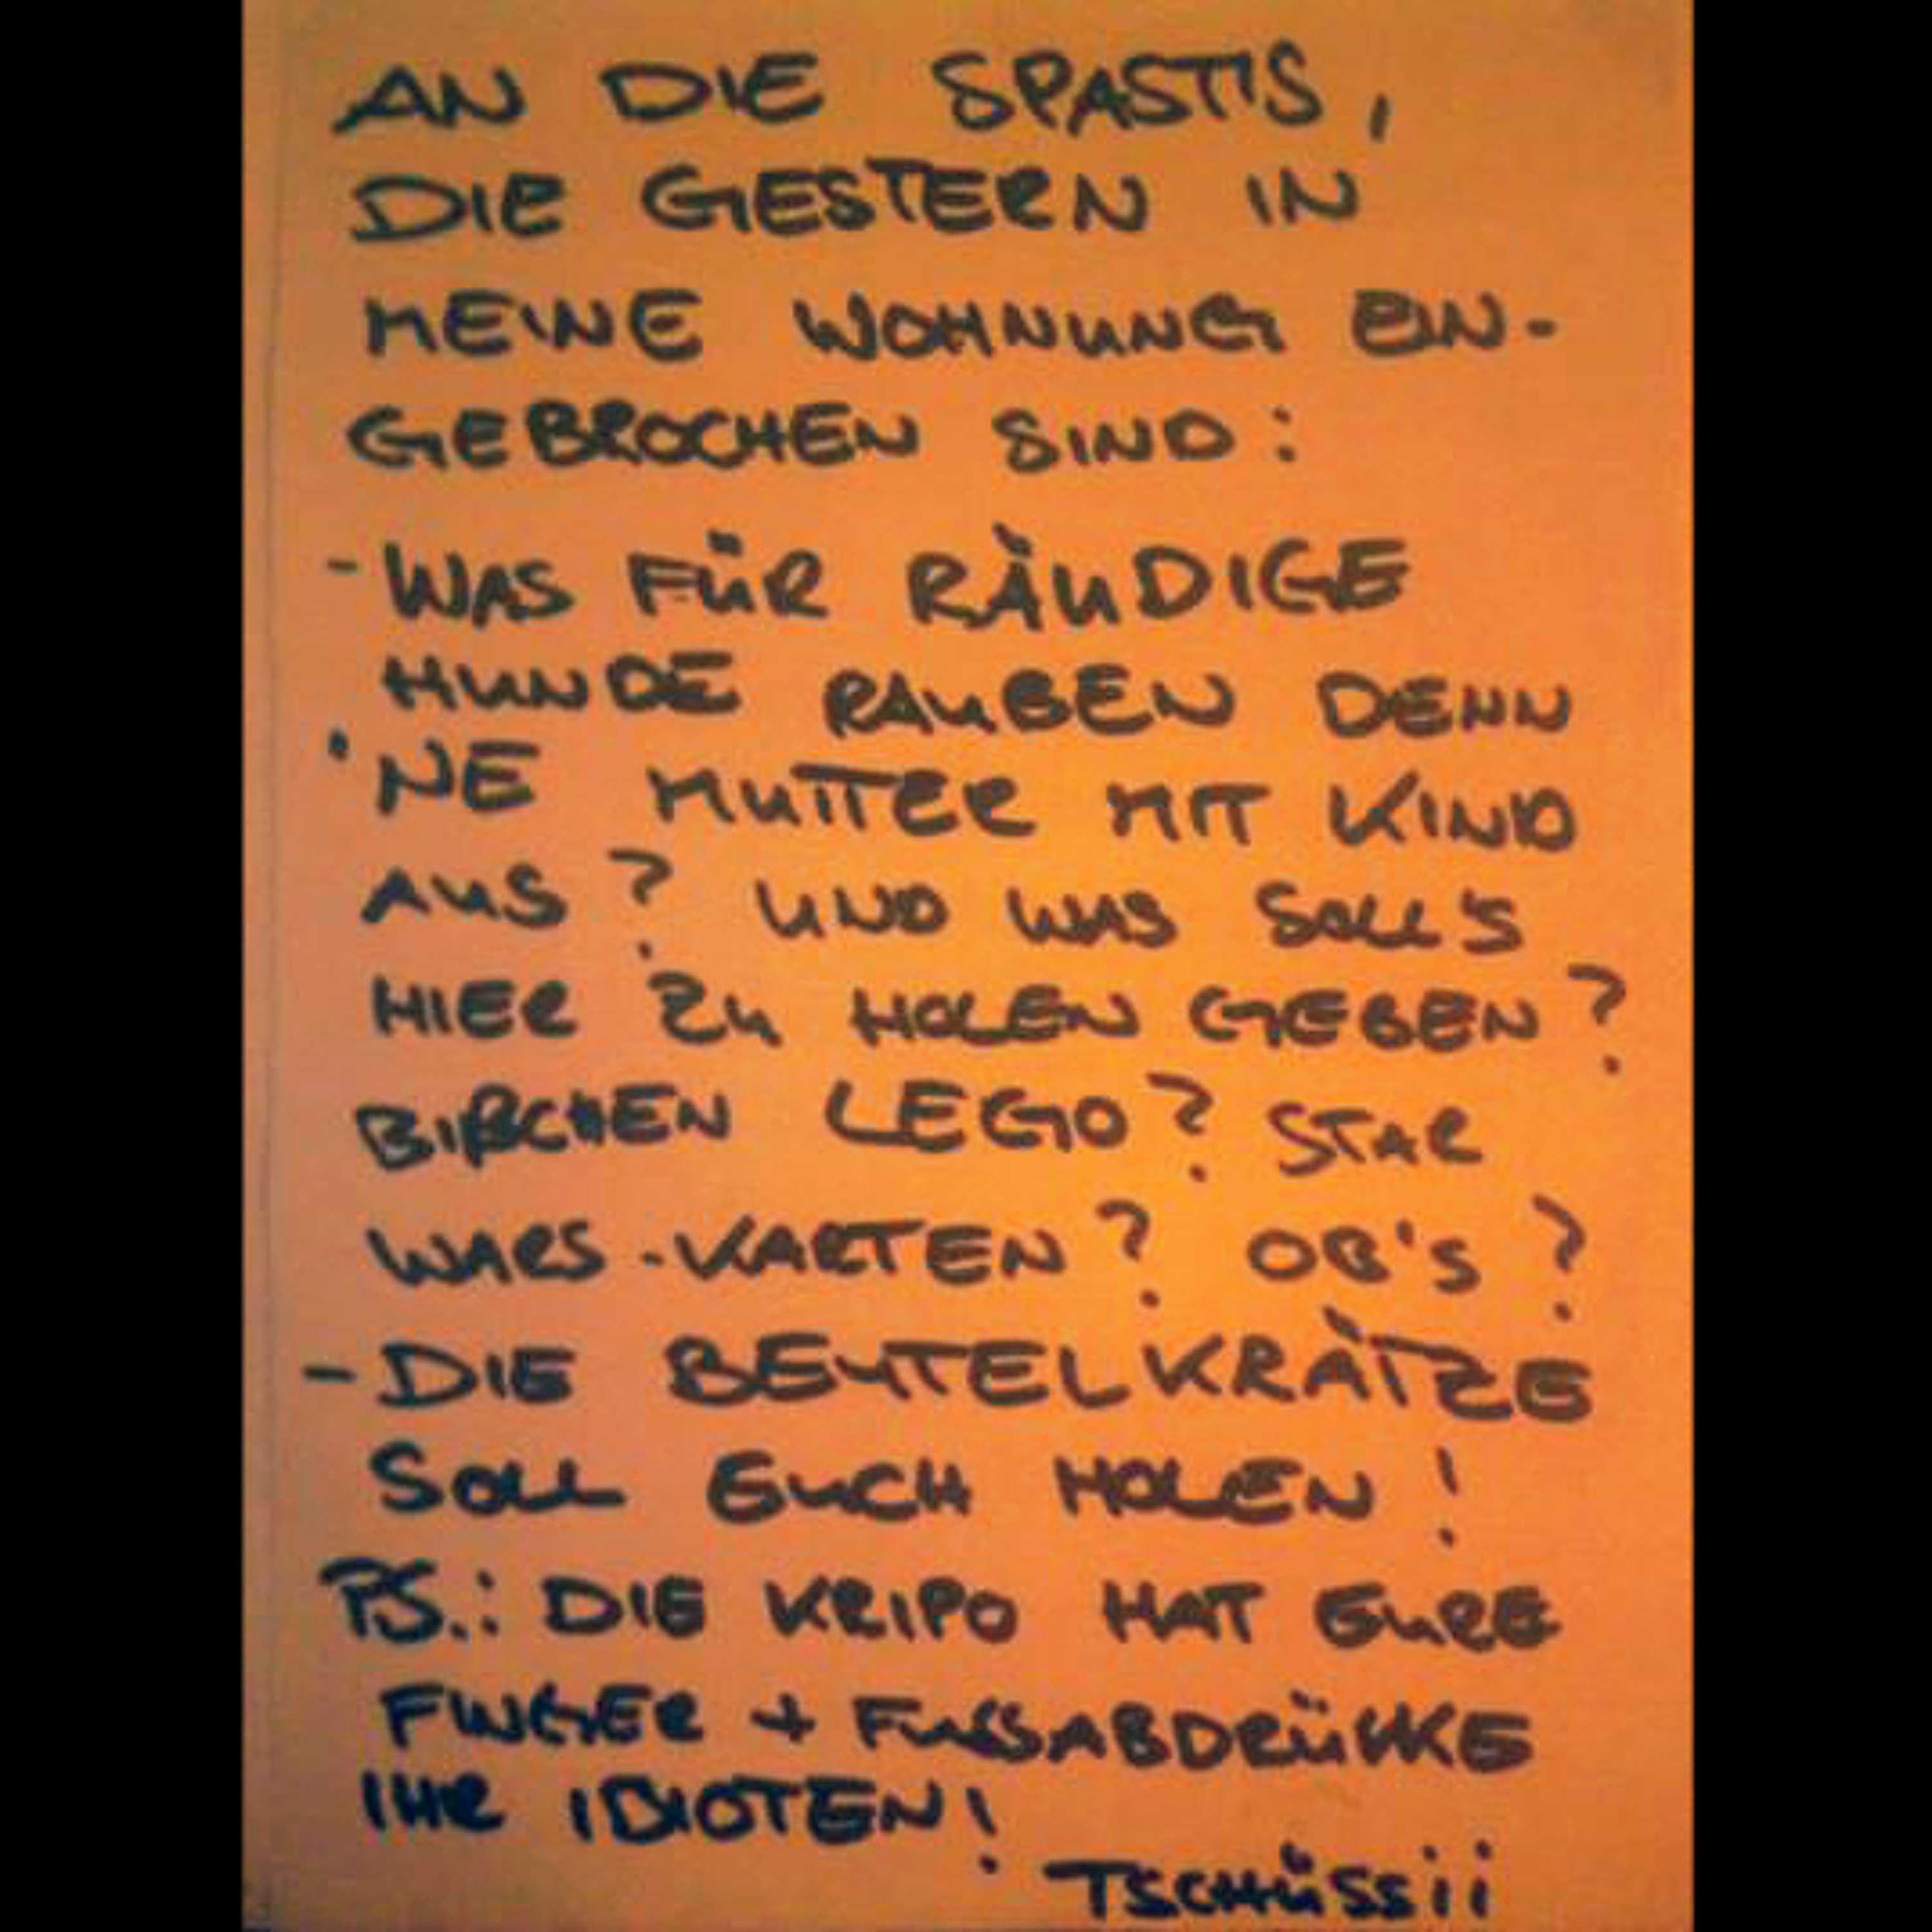 AN DIE SPASTIS,
DIE GESTERN IN
MEINE WOHNUNG EIN-
GEBROCHEN SIND:
- WAS FÜR RÄUDIGE
HUNDE RAUBEN DENN
'NE MUTTER MIT KIND
AUS? UND WAS SOLL'S
HIER ZU HOLEN GEBEN?
BIßCHEN LEGO? STAR
WARS-KARTEN? OB'S?
- DIE BEUTELKRÄTZE
SOLL EUCH HOLEN!
PS.: DIE KRIPO HAT EURE
FINGER + FUSSABDRÜCKE
IHR IDIOTEN!
TSCHÜSSii